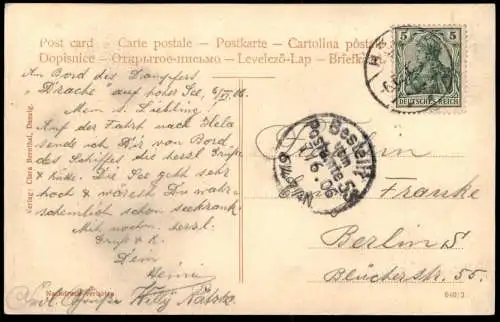 Post card – Carte postale – Postkarte – Cartolina postale
Dopisnice – Открытое-письмо – Levelező-Lap – Briefkaart
An Bord des Dampfers
"Drache" auf hoher See, 6/VI. 06.
Mein s. Liebling!
Auf der Fahrt nach Hela
sende ich Dir von Bord
des Schiffes die herzl. Grüße
u. Küsse. Die See geht sehr
hoch u. wärest Du wahr-
scheinlich schon seekrank.
Mit noch m. herzl.
Gruß u. K.
Dein
Heini
Grüße Willy
Verlag: Clara Bernthal, Danzig.
Nachdruck verboten
5 5
DEUTSCHES REICH
Bestellt
vom
Postamte 53
6 06
Fräulein
Franke
Berlin S
Blücherstr. 55.